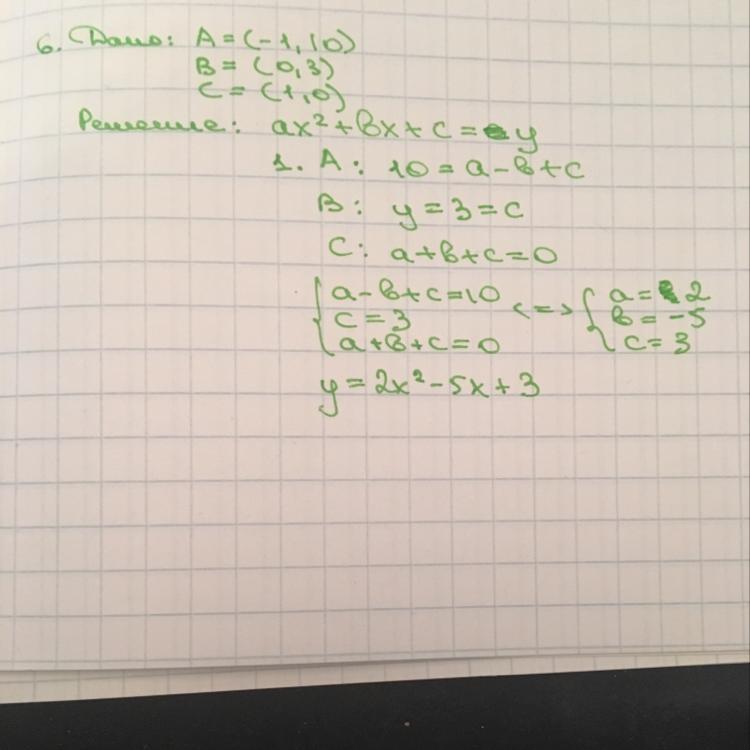 6. Дано: A = (-1, 10)
B = (0, 3)
C = (1, 0)
Решение: ax² + bx + c = y
1. A: 10 = a - b + c
B: y = 3 = c
C: a + b + c = 0
{ a - b + c = 10 <=> { a = 2
c = 3 b = -5
a + b + c = 0 c = 3
y = 2x² - 5x + 3